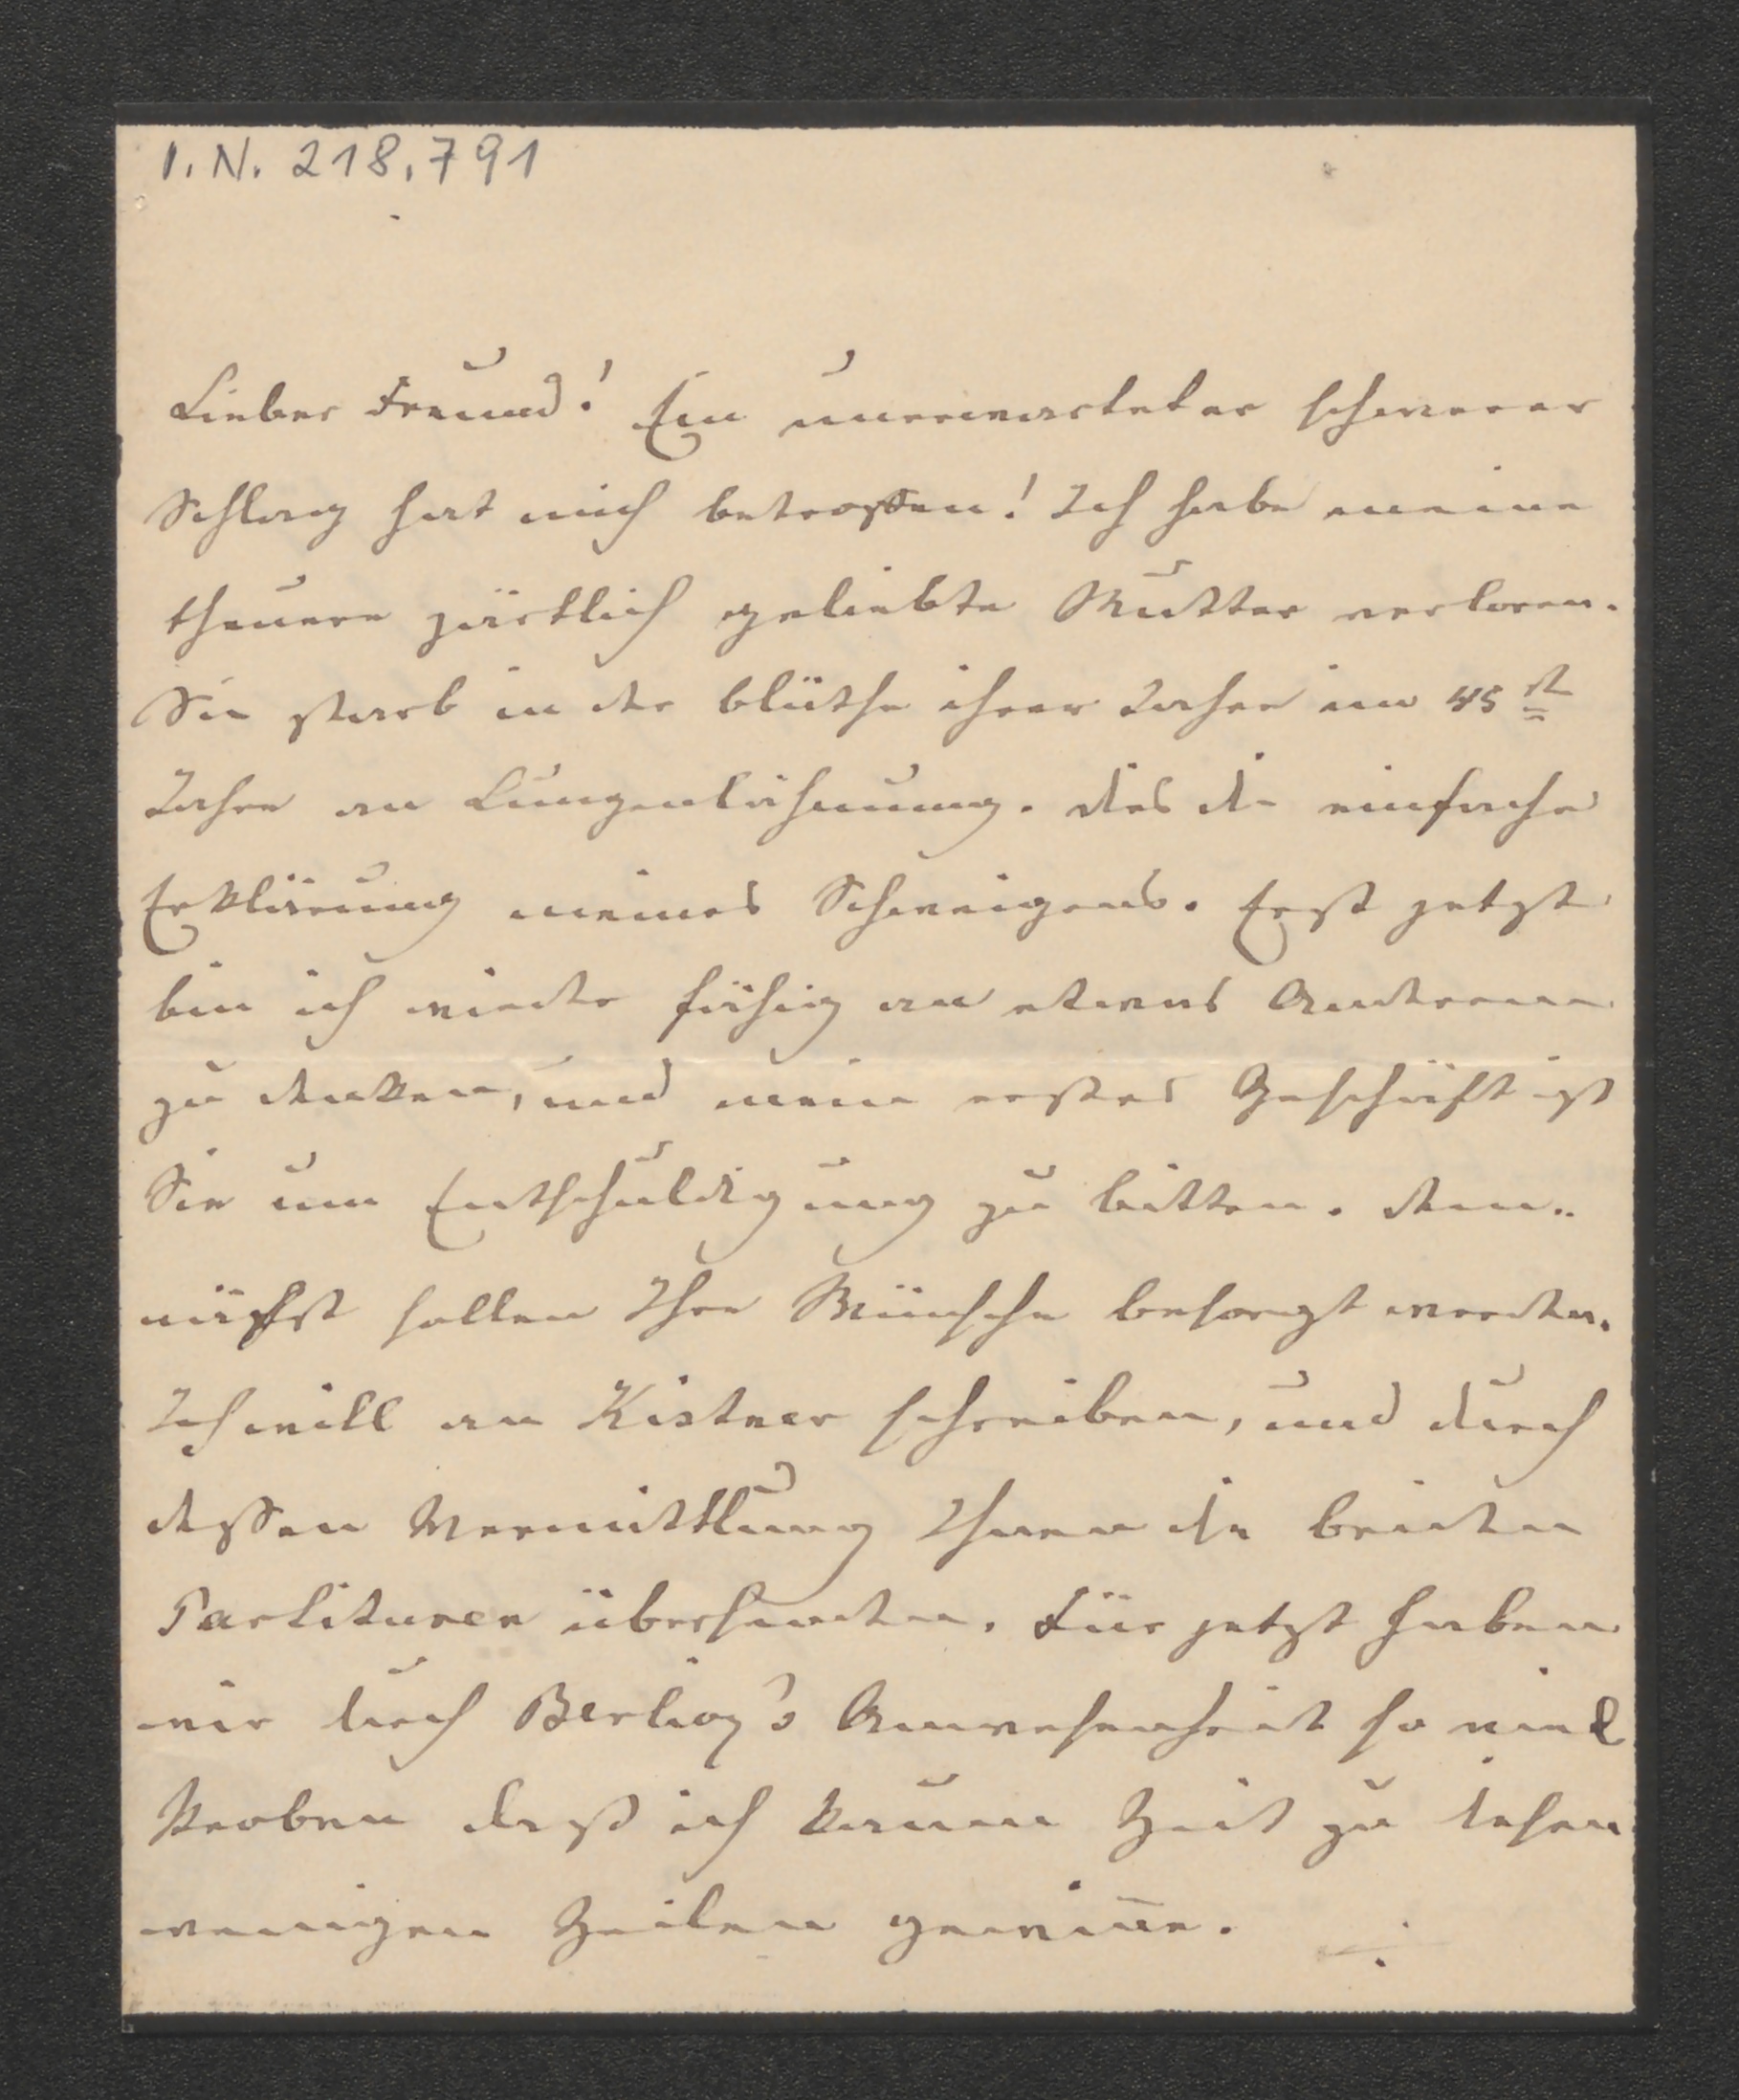 I. N. 218.791
Lieber Freund! Ein unerwarteter schwerer
Schlag hat mich betroffen! Ich habe meine
theuere zärtlich geliebte Mutter verloren.
Sie starb in der Blüthe ihrer Jahre im 45st
Jahre an Lungenlähmung. Dies die einfache
Erklärung meines Schweigens. Erst jetzt
bin ich wieder fähig an etwas Anderem
zu denken, und mein erstes Geschäft ist
Sie um Entschuldigung zu bitten. Dem„
nächst sollen Ihre Wünsche besorgt werden.
Ich will an Kistner schreiben, und durch
dessen Vermittlung Ihnen die beiden
Partituren übersenden. Für jetzt haben
wir durch Berlioz's Anwesenheit so viel
Proben daß ich kaum Zeit zu diesen
wenigen Zeilen gewinne.